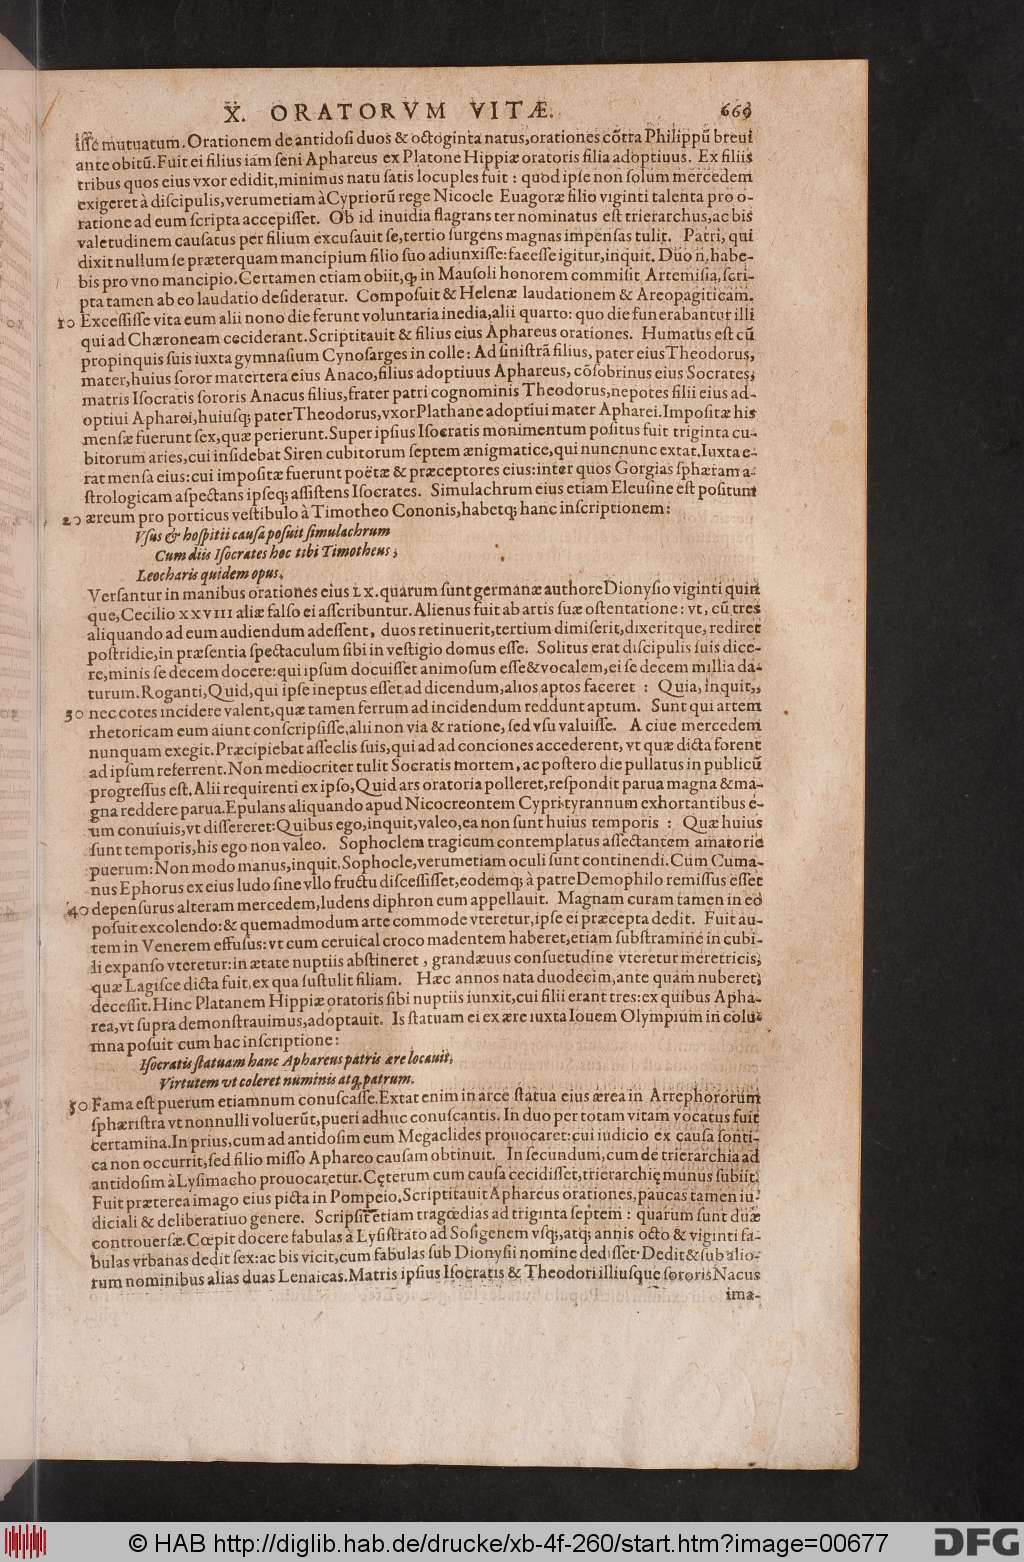 X. ORATORVM VITÆ. 669
iſſe mutuatum. Orationem de antidoſi duos & octoginta natus, orationes cõtra Philippũ breui
ante obitũ. Fuit ei filius iam ſeni Aphareus ex Platone Hippiæ oratoris filia adoptiuus. Ex filiis
tribus quos eius vxor edidit, minimus natu ſatis locuples fuit : quod ipſe non ſolum mercedem
exigeret à diſcipulis, verumetiam à Cypriorũ rege Nicocle Euagoræ filio viginti talenta pro o-
ratione ad eum ſcripta accepiſſet. Ob id inuidia flagrans ter nominatus eſt trierarchus, ac bis
valetudinem cauſatus per filium excuſauit ſe, tertio ſurgens magnas impenſas tulit. Patri, qui
dixit nullum ſe præterquam mancipium filio ſuo adiunxiſſe: faceſſe igitur, inquit. Duo n. habe-
bis pro vno mancipio. Certamen etiam obiit, ꝙ in Mauſoli honorem commiſit Artemiſia, ſcri-
pta tamen ab eo laudatio deſideratur. Compoſuit & Helenæ laudationem & Areopagiticam.
10 Exceſſiſſe vita eum alii nono die ferunt voluntaria inedia, alii quarto: quo die funerabantur illi
qui ad Chæroneam ceciderant. Scriptitauit & filius eius Aphareus orationes. Humatus eſt cũ
propinquis ſuis iuxta gymnaſium Cynoſarges in colle: Ad ſiniſtrã filius, pater eius Theodorus,
mater, huius ſoror matertera eius Anaco, filius adoptiuus Aphareus, cõſobrinus eius Socrates,
matris Iſocratis ſororis Anacus filius, frater patri cognominis Theodorus, nepotes filii eius ad-
optiui Apharei, huiuſq; pater Theodorus, vxor Plathane adoptiui mater Apharei. Impoſitæ his
menſæ fuerunt ſex, quæ perierunt. Super ipſius Iſocratis monimentum poſitus fuit triginta cu-
bitorum aries, cui inſidebat Siren cubitorum ſeptem ænigmatice, qui nuncnunc extat. Iuxta e-
rat menſa eius: cui impoſitæ fuerunt poëtæ & præceptores eius: inter quos Gorgias ſphæram a-
ſtrologicam aſpectans ipſeq; aſſiſtens Iſocrates. Simulachrum eius etiam Eleuſine eſt poſitum
20 æreum pro porticus veſtibulo à Timotheo Cononis, habetq; hanc inſcriptionem:
Vſus & hoſpitii cauſa poſuit ſimulachrum
Cum diis Iſocrates hoc tibi Timotheus ;
Leocharis quidem opus.
Verſantur in manibus orationes eius LX. quarum ſunt germanæ authore Dionyſio viginti quin
que, Cecilio XXVIII aliæ falſo ei aſſeribuntur. Alienus fuit ab artis ſuæ oſtentatione: vt, cũ tres
aliquando ad eum audiendum adeſſent, duos retinuerit, tertium dimiſerit, dixeritque, rediret
poſtridie, in præſentia ſpectaculum ſibi in veſtigio domus eſſe. Solitus erat diſcipulis ſuis dice-
re, minis ſe decem docere: qui ipſum docuiſſet animoſum eſſe & vocalem, ei ſe decem millia da-
turum. Roganti, Quid, qui ipſe ineptus eſſet ad dicendum, alios aptos faceret : Quia, inquit,,
30 nec cotes incidere valent, quæ tamen ferrum ad incidendum reddunt aptum. Sunt qui artem
rhetoricam eum aiunt conſcripſiſſe, alii non via & ratione, ſed vſu valuiſſe. A ciue mercedem
nunquam exegit. Præcipiebat aſſeclis ſuis, qui ad ad conciones accederent, vt quæ dicta forent
ad ipſum referrent. Non mediocriter tulit Socratis mortem, ac poſtero die pullatus in publicũ
progreſſus eſt. Alii requirenti ex ipſo, Quid ars oratoria polleret, reſpondit parua magna & ma-
gna reddere parua. Epulans aliquando apud Nicocreontem Cypri tyrannum exhortantibus e-
um conuiuis, vt diſſereret: Quibus ego, inquit, valeo, ea non ſunt huius temporis : Quæ huius
ſunt temporis, his ego non valeo. Sophoclem tragicum contemplatus aſſectantem amatorie
puerum: Non modo manus, inquit, Sophocle, verumetiam oculi ſunt continendi. Cum Cuma-
nus Ephorus ex eius ludo ſine vllo fructu diſceſſiſſet, eodemq; à patre Demophilo remiſſus eſſet
40 depenſurus alteram mercedem, ludens diphron eum appellauit. Magnam curam tamen in eo
poſuit excolendo: & quemadmodum arte commode vteretur, ipſe ei præcepta dedit. Fuit au-
tem in Venerem effuſus: vt cum ceruical croco madentem haberet, etiam ſubſtramine in cubi-
li expanſo vteretur: in ætate nuptiis abſtineret , grandæuus conſuetudine vteretur meretricis,
quæ Lagiſce dicta fuit, ex qua ſuſtulit filiam. Hæc annos nata duodecim, ante quàm nuberet,
deceſſit. Hinc Platanem Hippiæ oratoris ſibi nuptiis iunxit, cui filii erant tres: ex quibus Apha-
rea, vt ſupra demonſtrauimus, adoptauit. Is ſtatuam ei ex ære iuxta Iouem Olympium in colu-
mna poſuit cum hac inſcriptione:
Iſocratis ſtatuam hanc Aphareus patris ære locauit,
Virtutem vt coleret numinis atq; patrum.
50 Fama eſt puerum etiamnum conuſcaſſe. Extat enim in arce ſtatua eius ærea in Arrephororum
ſphæriſtra vt nonnulli voluerũt, pueri adhuc conuſcantis. In duo per totam vitam vocatus fuit
certamina. In prius, cum ad antidoſim eum Megaclides prouocaret: cui iudicio ex cauſa ſonti-
ca non occurrit, ſed filio miſſo Aphareo cauſam obtinuit. In ſecundum, cum de trierarchia ad
antidoſim à Lyſimacho prouocaretur. Cęterum cum cauſa cecidiſſet, trierarchię munus ſubiit.
Fuit præterea imago eius picta in Pompeio, Scriptitauit Aphareus orationes, paucas tamen iu-
diciali & deliberatiuo genere. Scripſit etiam tragœdias ad triginta ſeptem : quarum ſunt duæ
controuerſæ. Cœpit docere fabulas à Lyſiſtrato ad Soſigenem vſq;, atq; annis octo & viginti fa-
bulas vrbanas dedit ſex: ac bis vicit, cum fabulas ſub Dionyſii nomine dediſſet. Dedit & ſub alio-
rum nominibus alias duas Lenaicas. Matris ipſius Iſocratis & Theodori illiuſque ſororis Nacus
ima-
© HAB http://diglib.hab.de/drucke/xb-4f-260/start.htm?image=00677
DFG